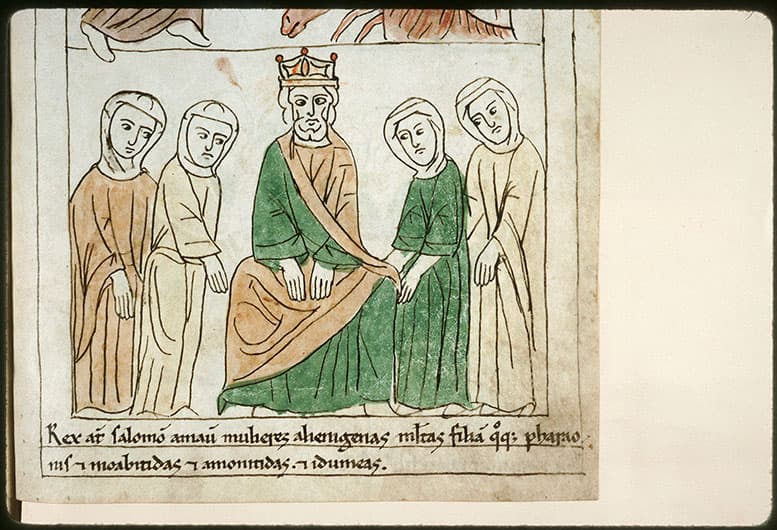 Rex at̄ salomō amaū mulieres alienigenas ml̄tas filiā q̊q; pharao
nis ⁊ moabitidas ⁊ amonitidas. ⁊ idumeas.